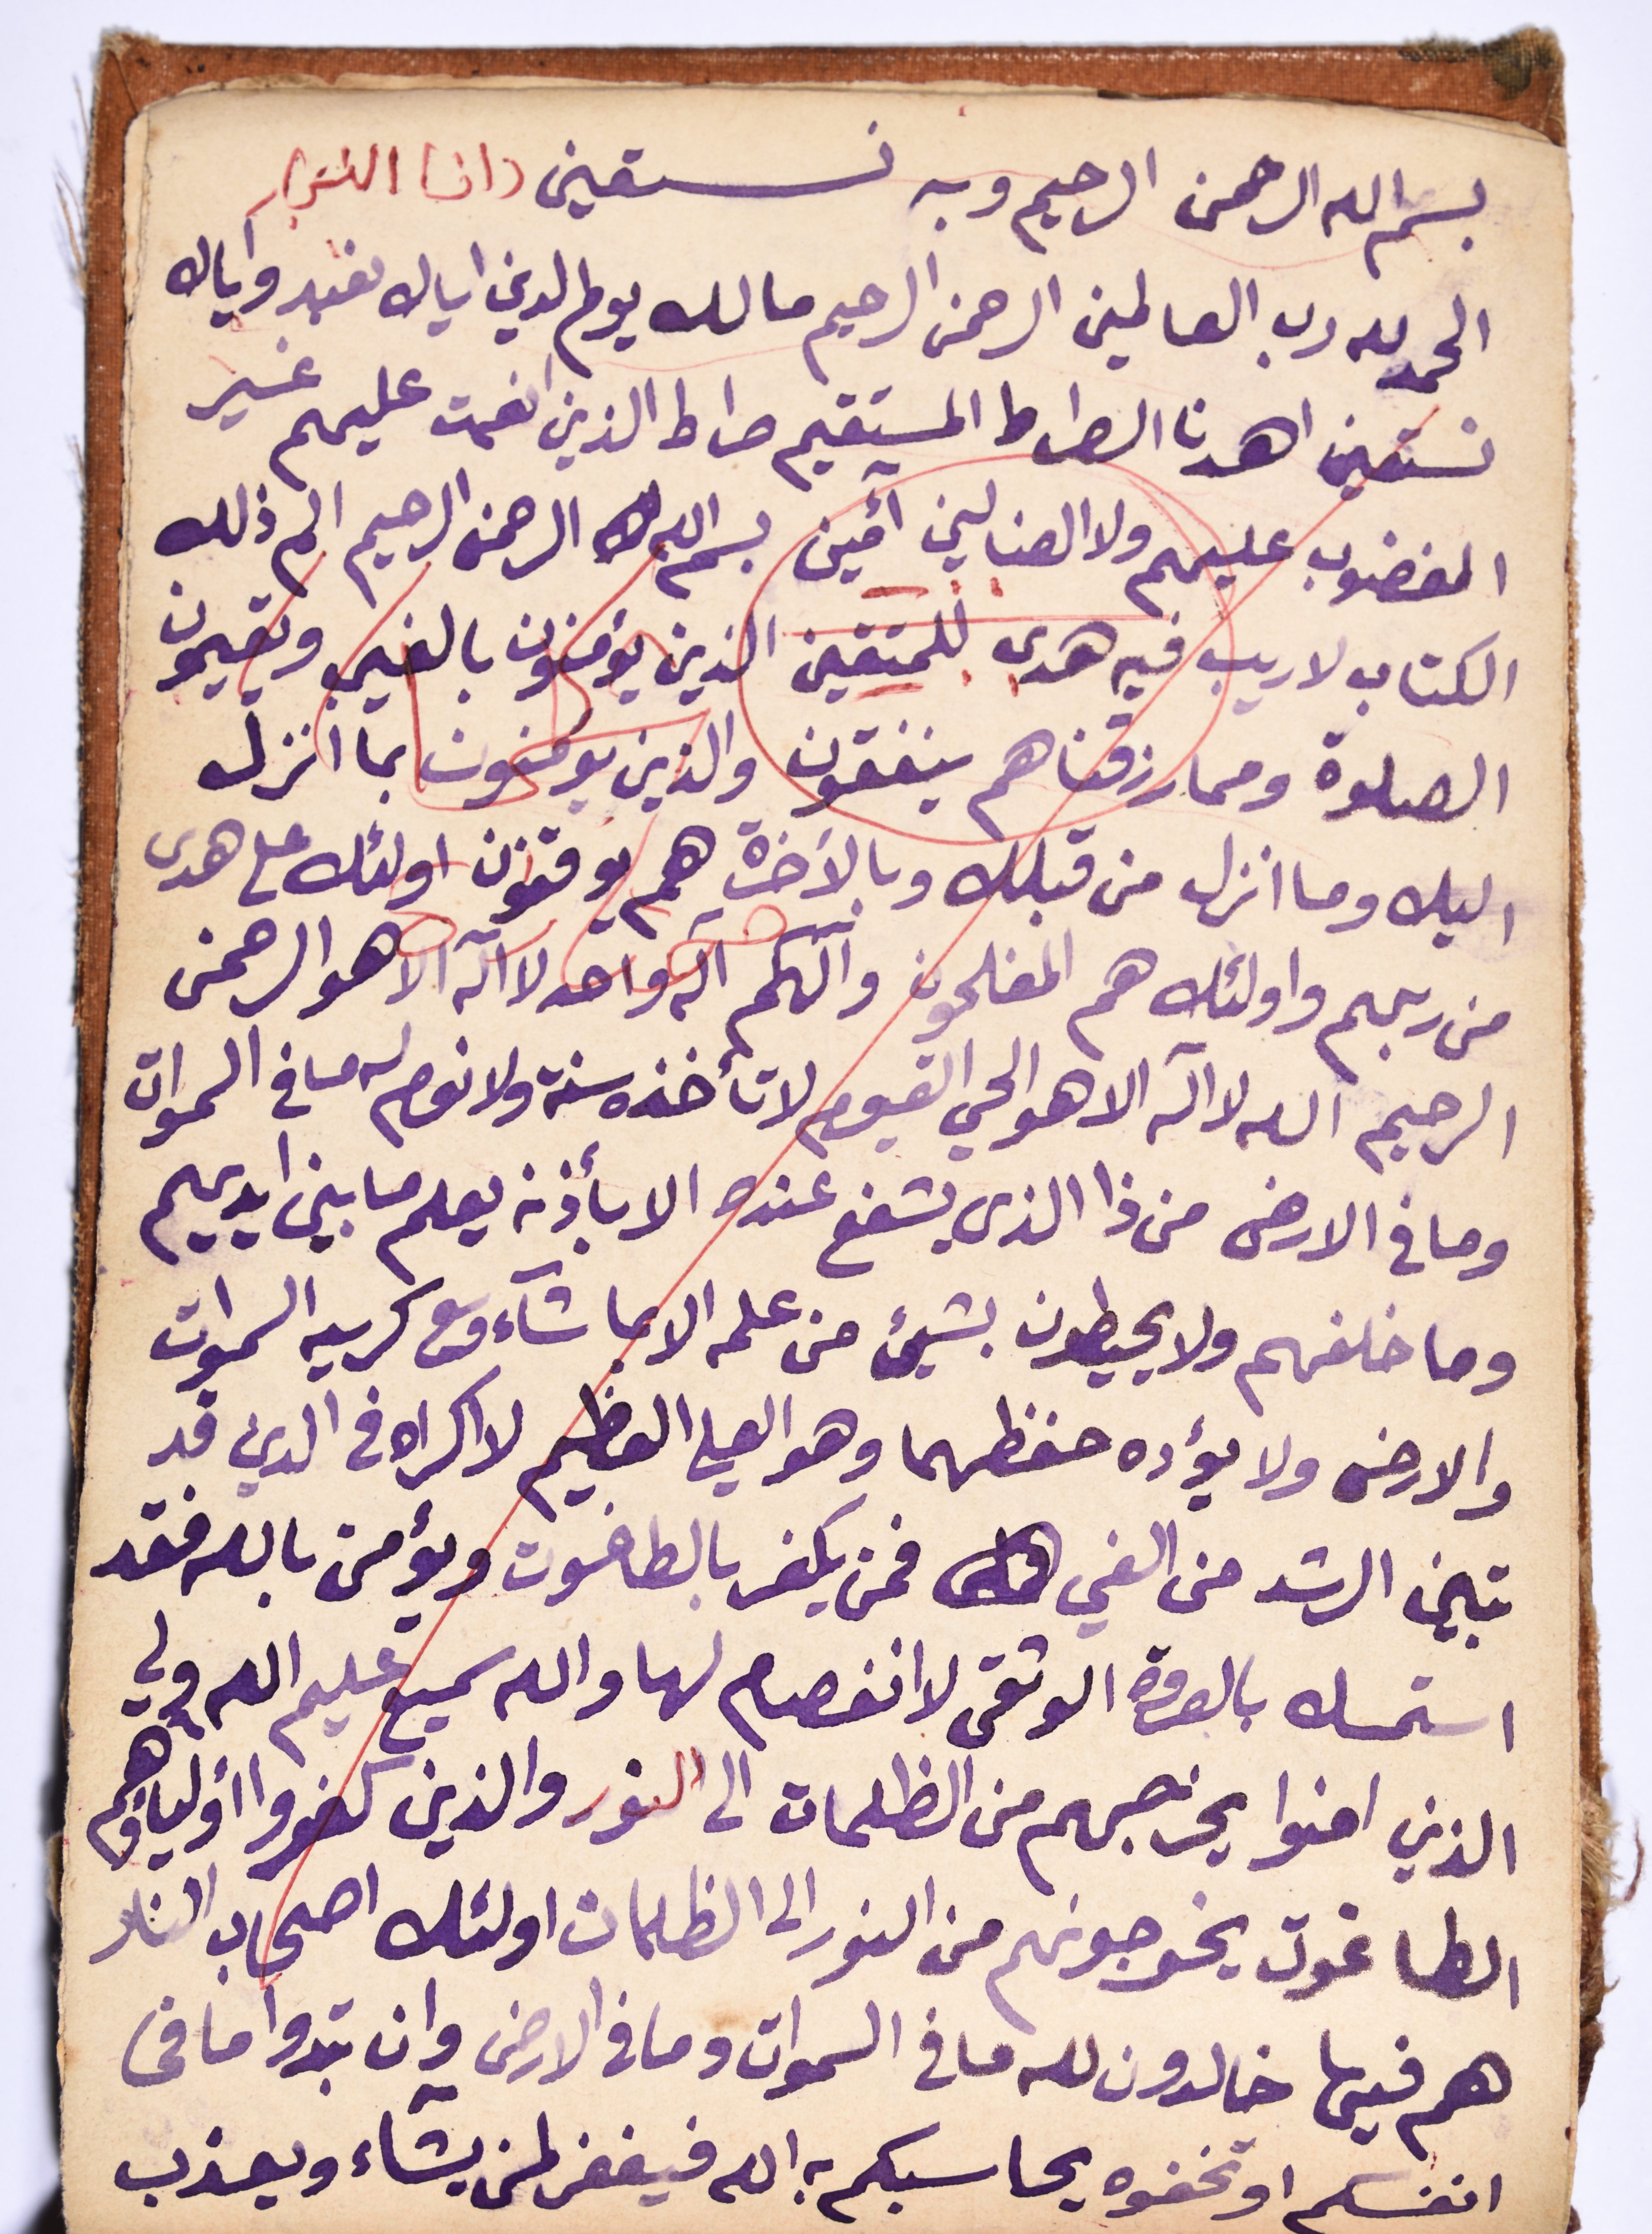 بسم الله الرحمن الرحيم وبه نستعين
الحمد لله رب العالمين الرحمن الرحيم مالك يوم الدين اياك نعبد واياك
نستعين اهدنا الصراط المستقيم صراط الذين انعمت عليهم غير
المغضوب عليهم ولا الضالين آمين بسم الله الرحمن الرحيم الم ذلك
الكتاب لا ريب فيه هدى للمتقين الذين يؤمنون بالغيب ويقيمون
الصلوة ومما رزقناهم ينفقون والذين يومنون بما انزل
اليك وما انزل من قبلك وبالآخرة هم يوقنون اولئك على هدى
من ربهم واولئك هم المفلحون وآلهكم آله واحد لا آله الا هو الرحمن
الرحيم الله لا اله الا هو الحي القيوم لا تأخذه سنة ولا نوم له ما في السموات
وما في الارض من ذا الذى يشفع عنده الا بأذنه يعلم ما بين ايديهم
وما خلفهم ولا يحيطون بشيئ من علمه الا بما شآء وسع كرسيه السموات
والارض ولا يؤده حفظهما وهو العلي العظيم لا اكراه في الدين قد
تبين الرشد من الغي فمن يكفر بالطاغوت ويؤمن بالله فقد
استمسك بالعروة الوثقى لا انفصام لها والله سميع عليم الله ولي
الذين امنوا يخرجهم من الظلمات الى النور والذين كفروا أولياؤهم
الطاغوت يخرجونهم من النور الى الظلمات اولئك اصحاب النار
هم فيها خالدون لله ما في السموات وما في الارض وان تبدوا ما في
انفسكم او تخفوه يحاسبكم به الله فيغفر لمن يشآء ويعذب